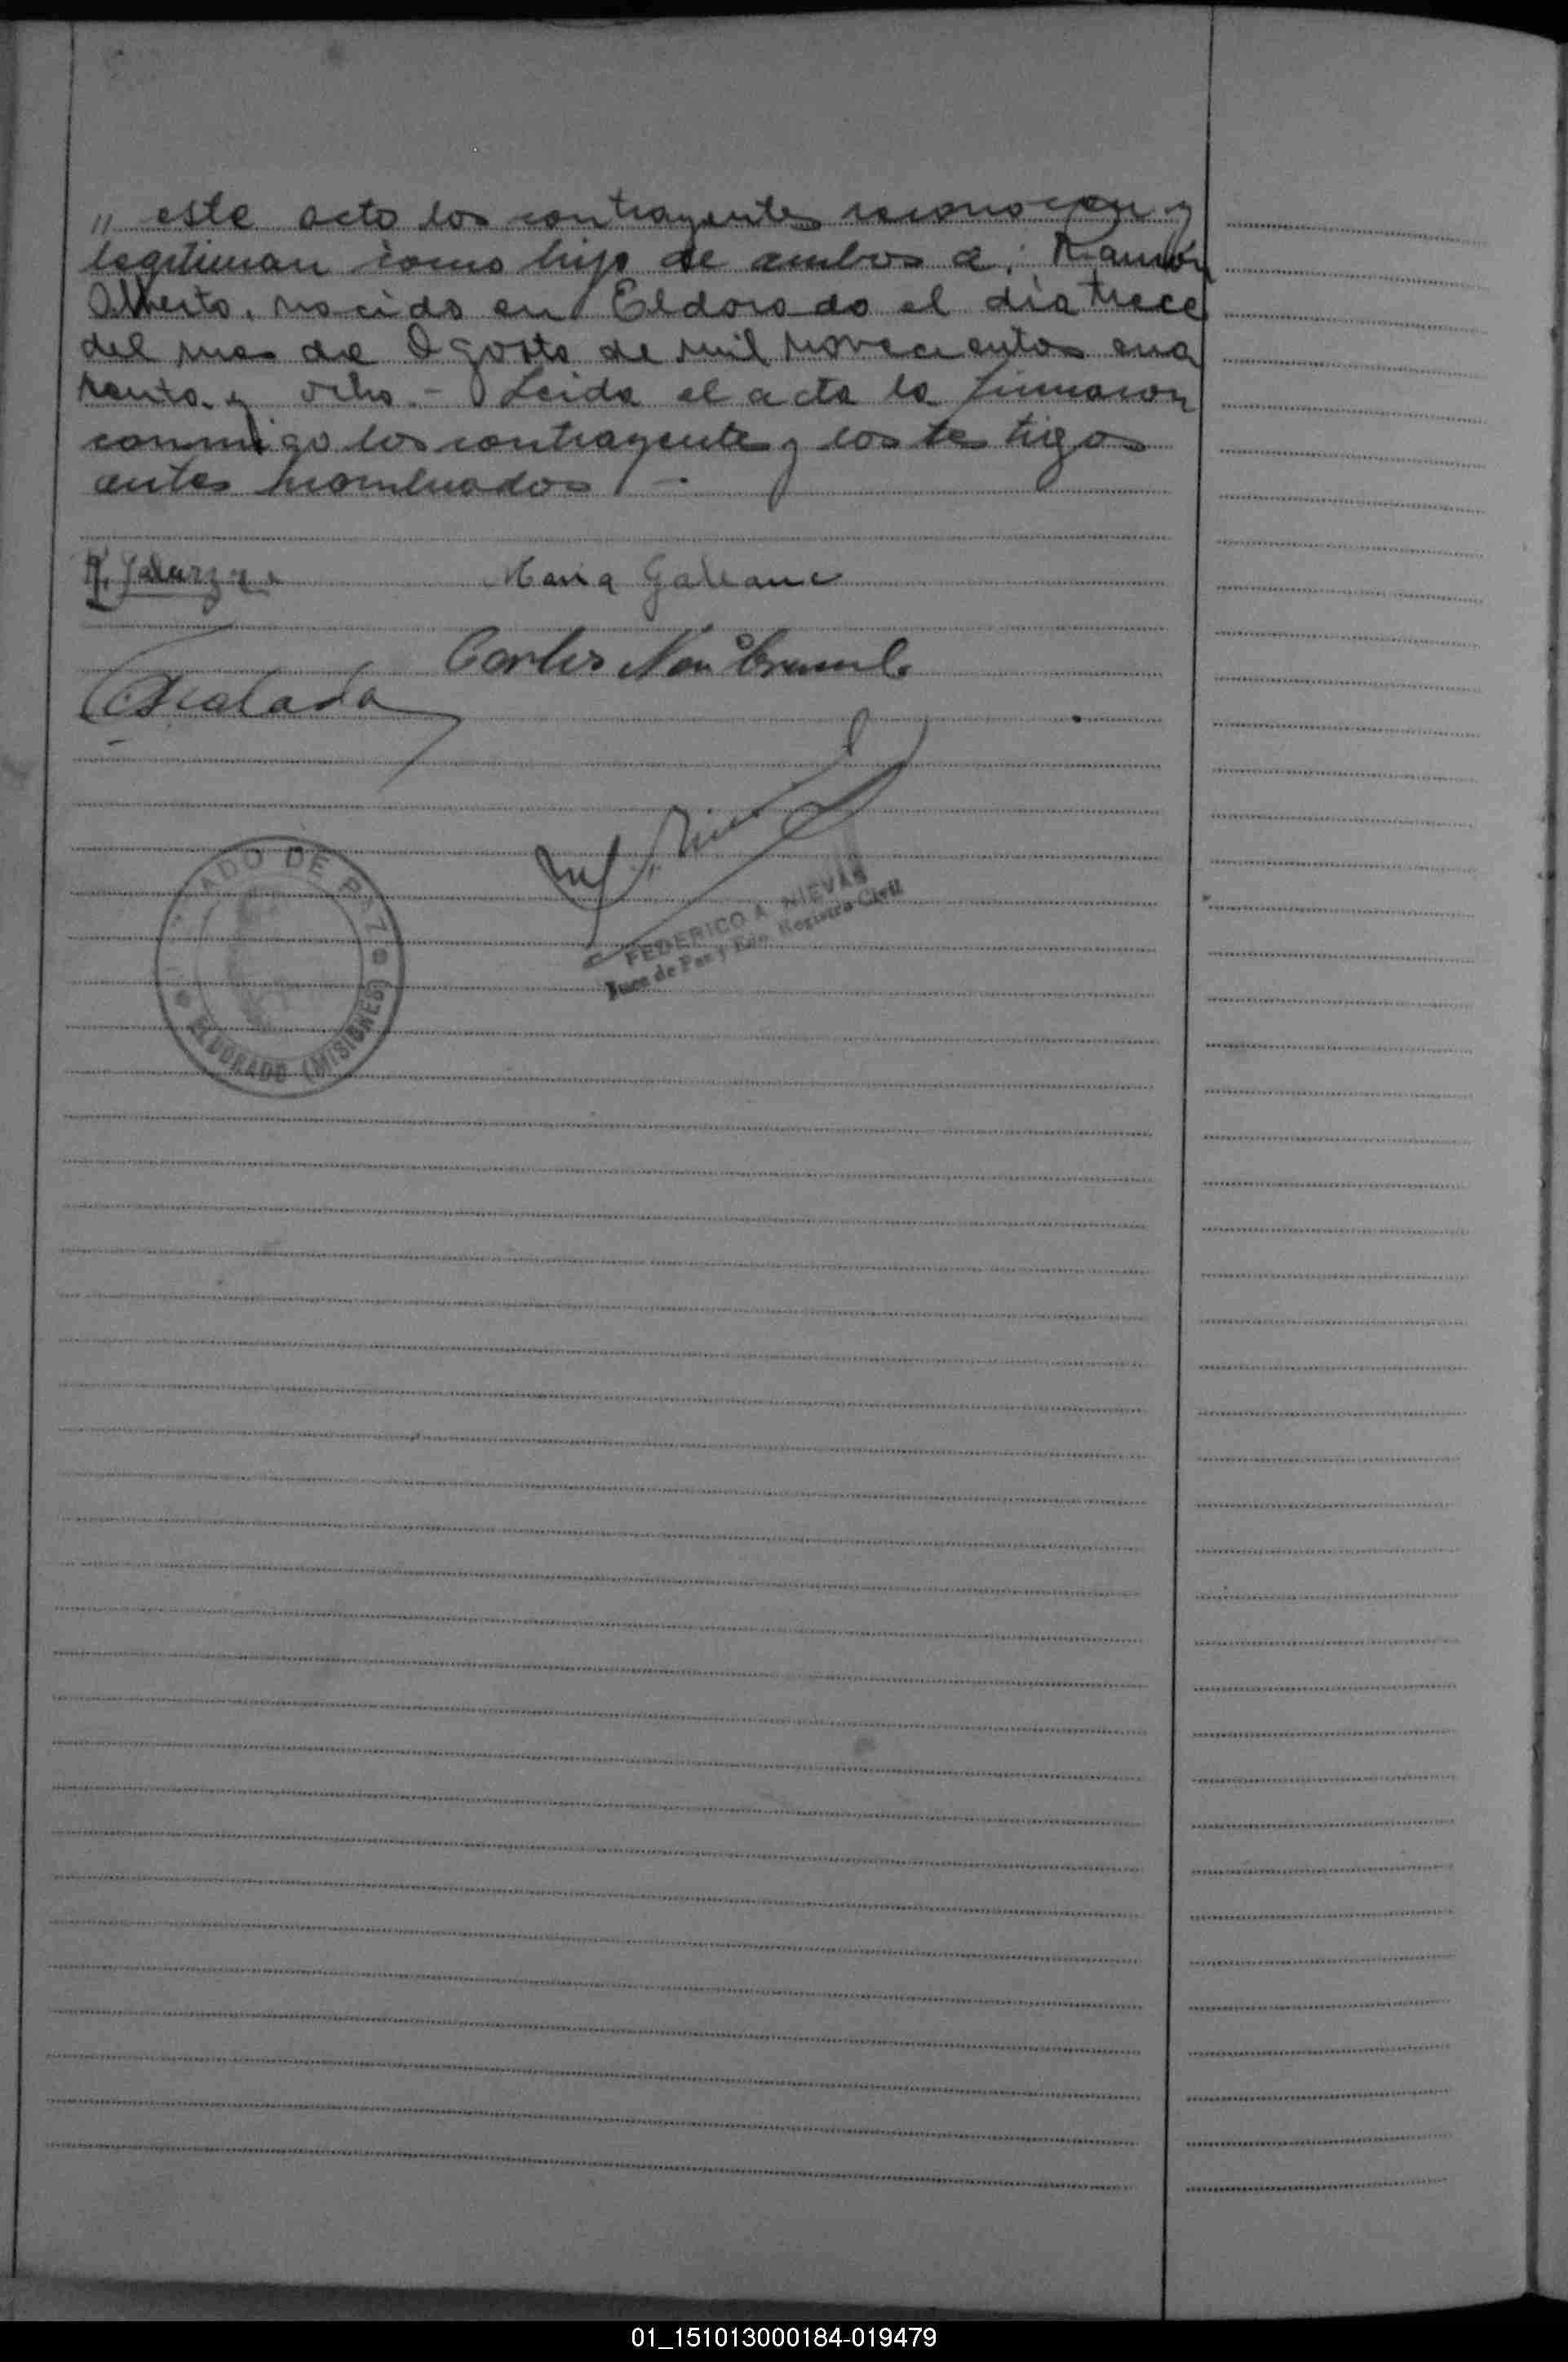 „ este acto los contrayentes reconocen y
legitiman como hijo de ambos a: Ramón
Alberto, nacido en Eldorado el dia trece
del mes de Agosto de mil novecientos cua
renta y ocho.- Leida el acta la firmaron
conmigo los contrayentes y los testigos
antes nombrados -.
Maria Galeano
Carlos
Escalada
FEDERICO A. NIEVAS
Juez de Paz y Registro Civil
ADO DE PAZ
ELDORADO (MISIONES)
01_151013000184-019479